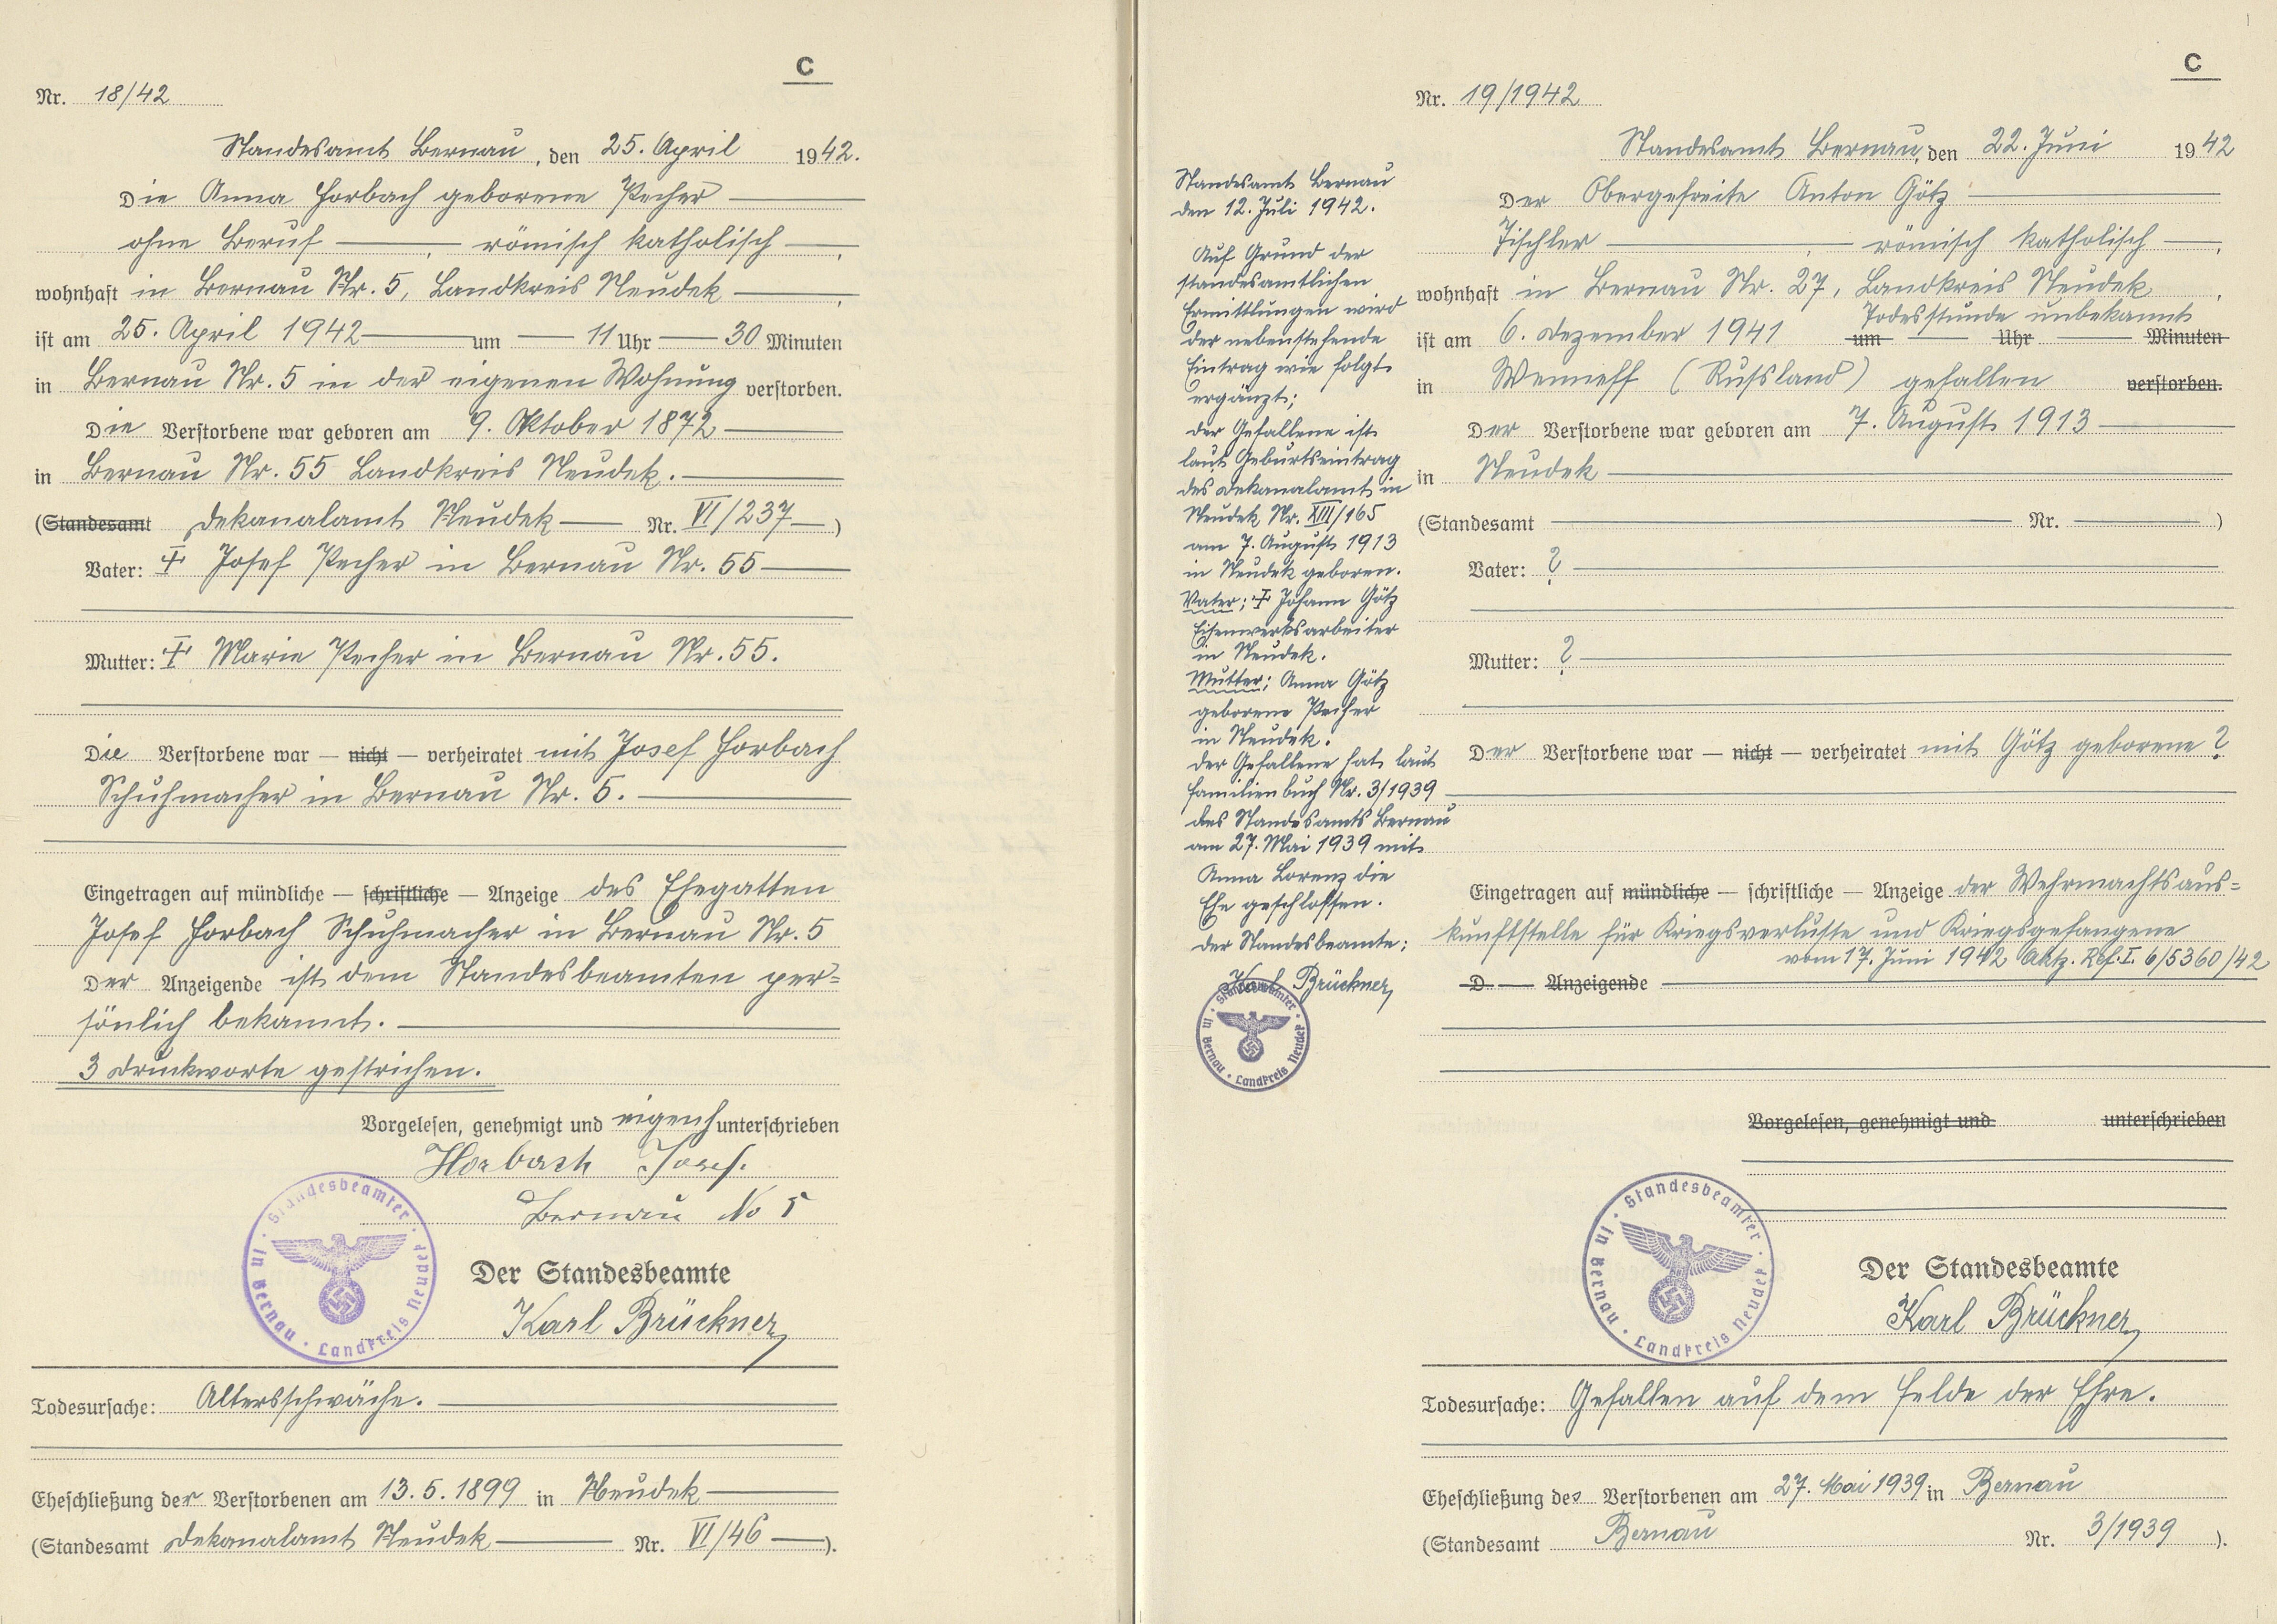 C
Nr. 18/42
Standesamt Bernau, den 25. April 1942.
Die Anna Horbach geborene Pecher
ohne Beruf, römisch katholisch,
wohnhaft in Bernau Nr. 5, Landkreis Neudek,
ist am 25. April 1942 um 11 Uhr 30 Minuten
in Bernau Nr. 5 in der eigenen Wohnung verstorben.
Die Verstorbene war geboren am 9. Oktober 1872
in Bernau Nr. 55 Landkreis Neudek.
(Standesamt Dekanalamt Neudek Nr. VI/237)
Vater: ‡ Josef Pecher in Bernau Nr. 55
Mutter: ‡ Marie Pecher in Bernau Nr. 55.
Die Verstorbene war — nicht — verheiratet mit Josef Horbach
Schuhmacher in Bernau Nr. 5.
Eingetragen auf mündliche — schriftliche — Anzeige des Ehegatten
Josef Horbach Schuhmacher in Bernau Nr. 5
Der Anzeigende ist dem Standesbeamten per=
sönlich bekannt.
3 Druckworte gestrichen.
Vorgelesen, genehmigt und eigenh unterschrieben
Horbach Josef.
Bernau No 5
Standesbeamter · in Bernau · Landkreis Neudek
Der Standesbeamte
Karl Brückner
Todesursache: Altersschwäche.
Eheschließung der Verstorbenen am 13. 5. 1899 in Neudek
(Standesamt Dekanalamt Neudek Nr. VI/46).
C
Nr. 19/1942
Standesamt Bernau, den 22. Juni 1942
Der Obergefreite Anton Götz
Tischler, römisch katholisch,
wohnhaft in Bernau Nr. 27, Landkreis Neudek,
Todesstunde unbekannt
ist am 6. Dezember 1941 um Uhr Minuten
in Wenneff (Russland) gefallen verstorben.
Der Verstorbene war geboren am 7. August 1913
in Neudek
(Standesamt Nr. )
Vater: ?
Mutter: ?
Der Verstorbene war — nicht — verheiratet mit Götz geborene ?
Eingetragen auf mündliche — schriftliche — Anzeige der Wehrmachtsaus=
kunftstelle für Kriegsverluste und Kriegsgefangene
vom 17. Juni 1942 Aktz. Ref. I. 6/5360/42
D Anzeigende
Vorgelesen, genehmigt und unterschrieben
Standesbeamter · in Bernau · Landkreis Neudek
Der Standesbeamte
Karl Brückner
Todesursache: Gefallen auf dem Felde der Ehre.
Eheschließung des Verstorbenen am 27. Mai 1939 in Bernau
(Standesamt Bernau Nr. 3/1939).
Standesamt Bernau
den 12. Juli 1942.
Auf Grund der
standesamtlichen
Ermittlungen wird
der nebenstehende
Eintrag wie folgt
ergänzt;
der Gefallene ist
laut Geburtseintrag
des Dekanalamt in
Neudek Nr. XIII/165
am 7. August 1913
in Neudek geboren.
Vater; ‡ Johann Götz
Eisenwerksarbeiter
in Neudek.
Mutter; Anna Götz
geborene Pecher
in Neudek.
der Gefallene hat laut
Familienbuch Nr. 3/1939
des Standesamts Bernau
am 27. Mai 1939 mit
Anna Lorenz die
Ehe geschlossen.
der Standesbeamte;
Karl Brückner
Standesbeamter · in Bernau · Landkreis Neudek